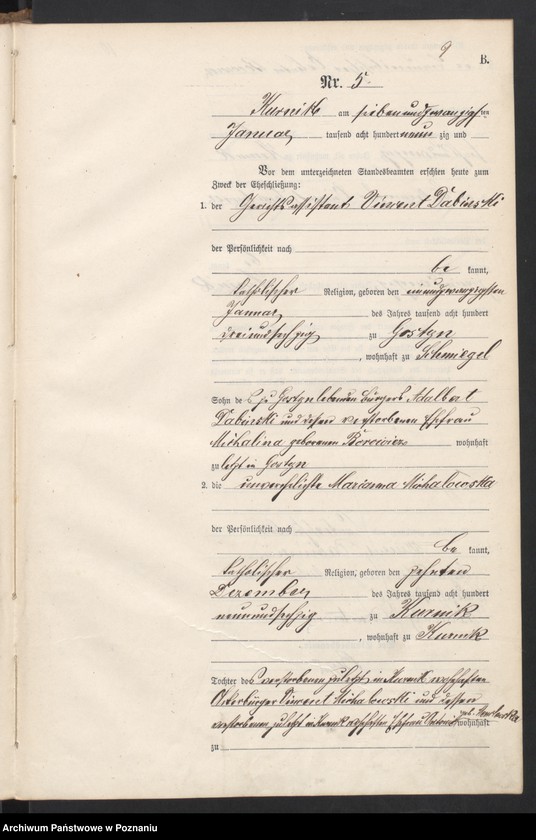 9
B.
Nr. 5
Kurnik am siebenundzwanzigsten
Januar tausend acht hundert neun zig und
Vor dem unterzeichneten Standesbeamten erschien heute zum
Zweck der Eheschließung:
1. der Gerichtsassistent Vincent Dabinski
der Persönlichkeit nach
be kannt,
katholischer Religion, geboren den einundzwanzigsten
Januar des Jahres tausend acht hundert
dreiundsechzig zu Gostyn
, wohnhaft zu Schmiegel
Sohn des zu Gostyn lebenden Bürgers Adalbert
Dabinski und dessen verstorbenen Ehefrau
Michalina geborenen wohnhaft
zuletzt in Gostyn
2. die unverehelichte Marianna Michalowska
der Persönlichkeit nach
be kannt,
katholischer Religion, geboren den zehnten
Dezember des Jahres tausend acht hundert
neunundsechzig zu Kurnik
, wohnhaft zu Kurnik
Tochter des verstorbenen zuletzt in Kurnik wohnhaften
Ackerbürger Vincent Michalowski und dessen
verstorbenen zuletzt in Kurnik wohnhaften Ehefrau geb. wohnhaft
zu
Archiwum Państwowe w Poznaniu